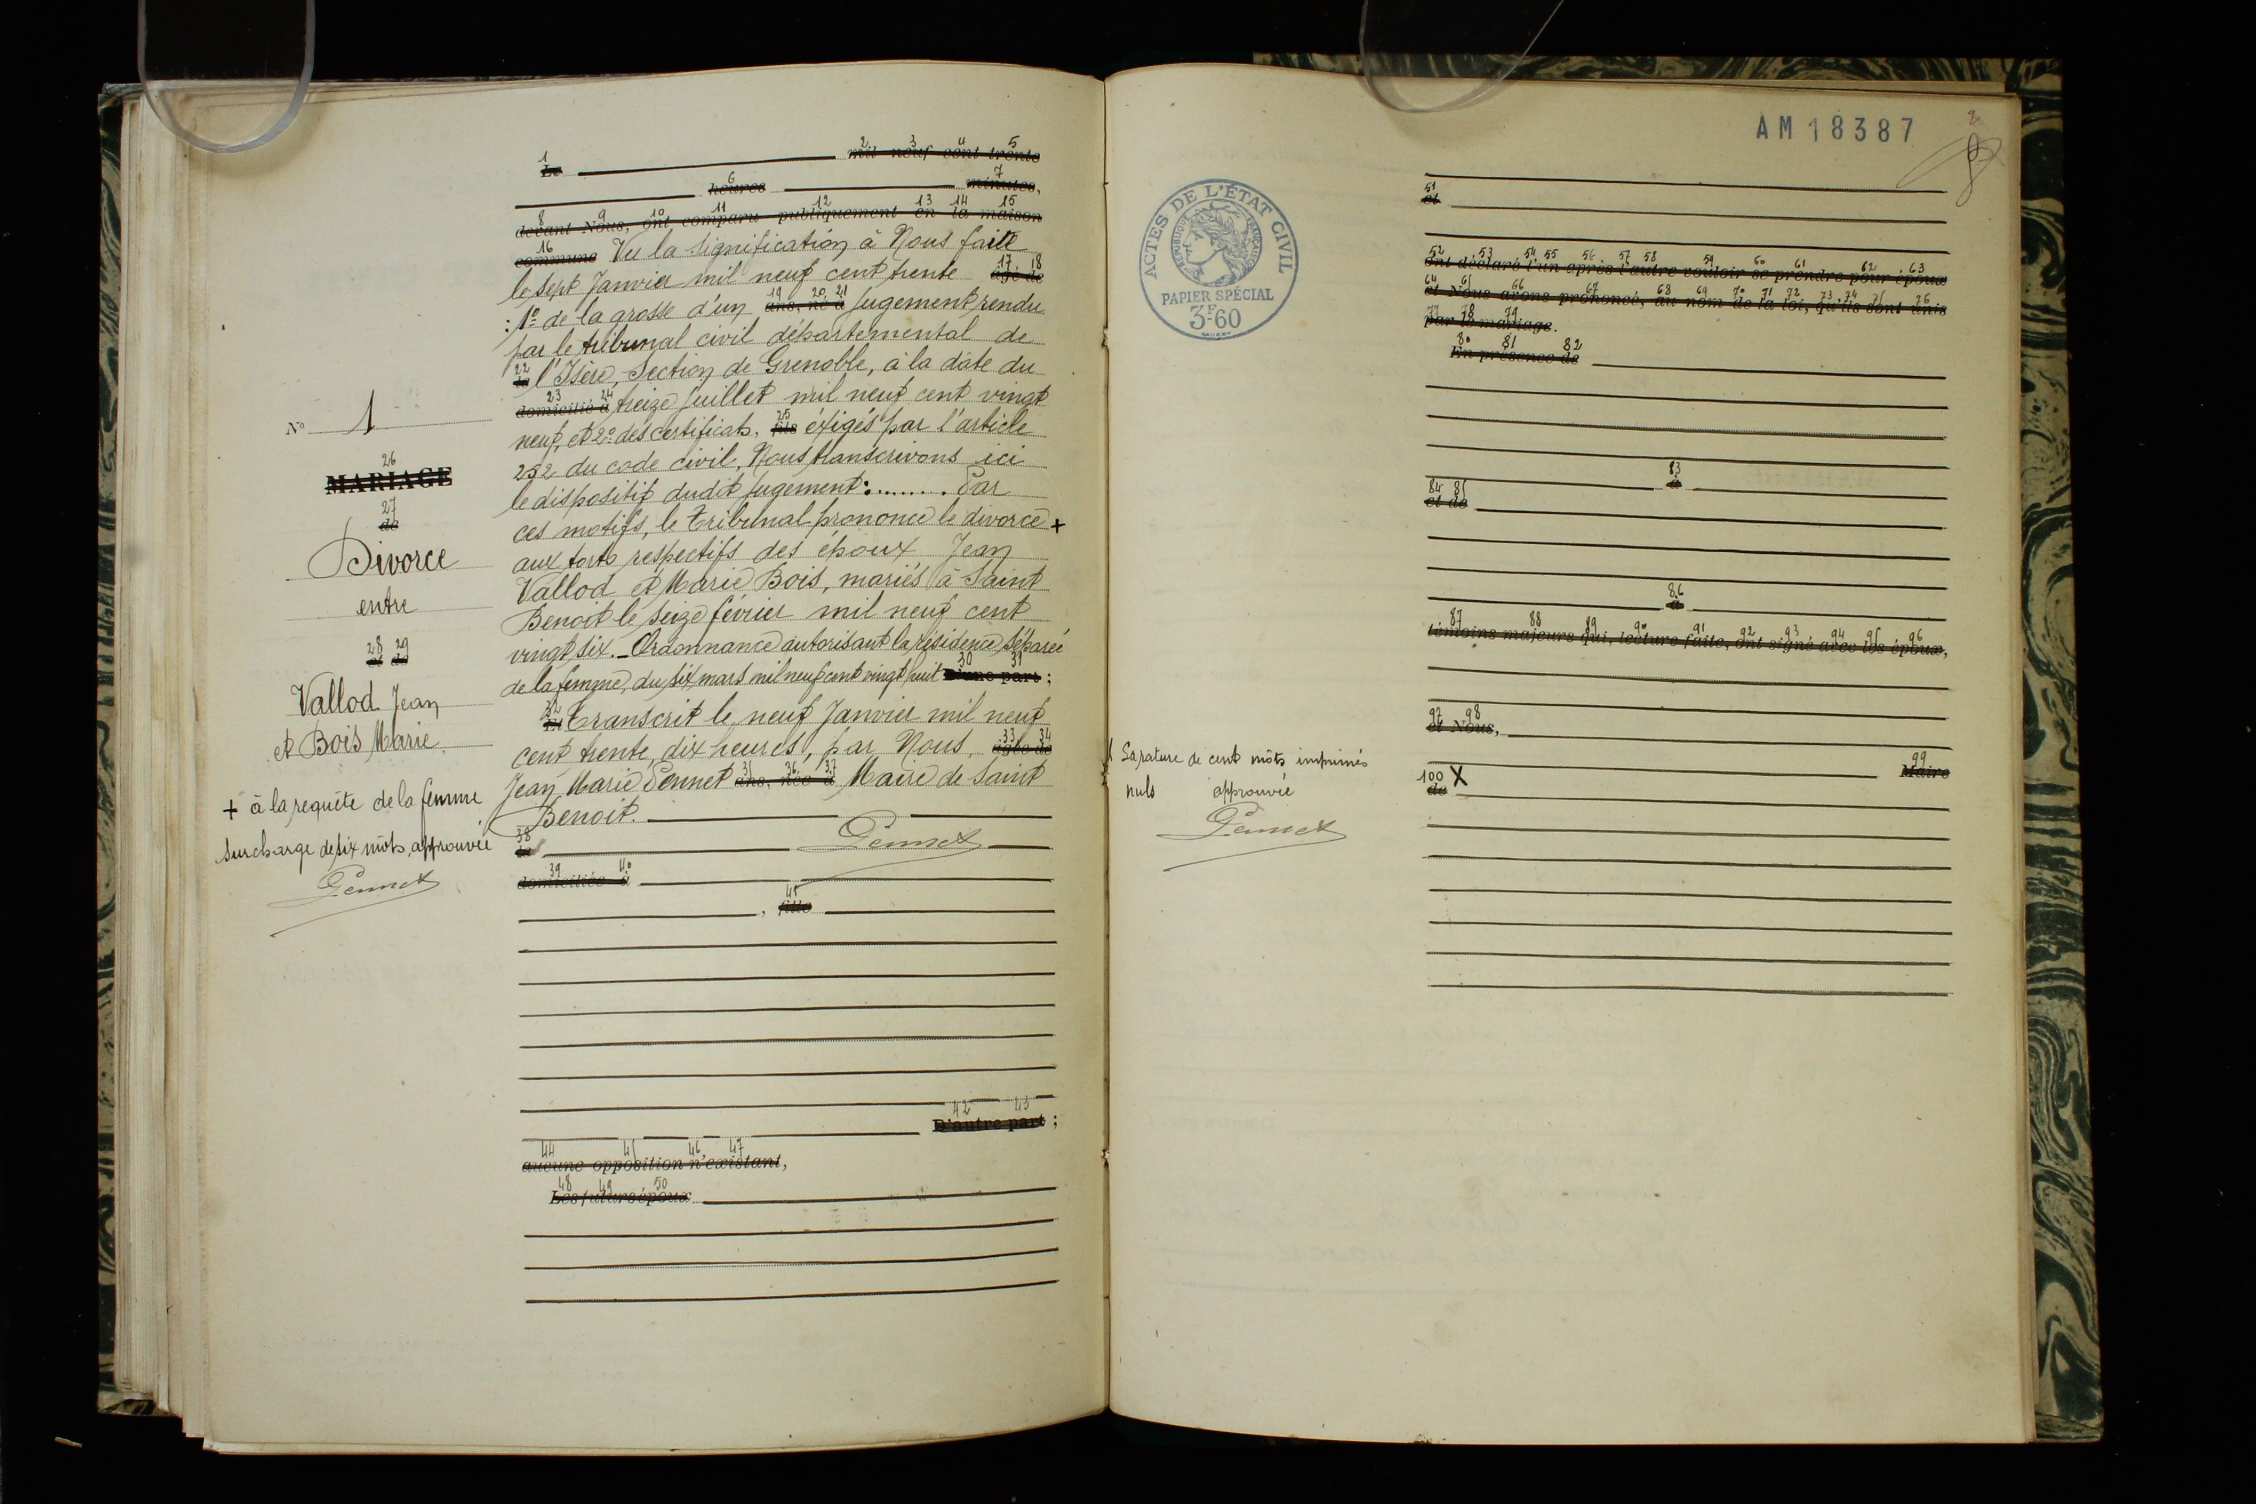 N° 1
26
MARIAGE
27
de
Divorce
entre
28 29
et de
Vallod Jean
et Bois Marie.
+ à la requête de la femme
Surcharge de six mots approuvée
Pennet
1 2 3 4 5
Le mil neuf cent trente
6 7
heures minutes,
8 9 10 11 12 13 14 15
devant Nous, ont comparu publiquement en la maison
16
commune Vu la signification à Nous faite
17 18
le sept Janvier mil neuf cent trente âgé de
19 20 21
: 1° de la grosse d'un ans, né à jugement rendu
par le tribunal civil départemental de
22
le l'Isère, Section de Grenoble, à la date du
23 24
domicilié à treize juillet mil neuf cent vingt
25
neuf, et 2° des certificats, fils éxigés par l'article
252 du code civil, Nous transcrivons ici
le dispositif dudit jugement :......... Par
ces motifs, le Tribunal prononce le divorce +
aux torts respectifs des époux Jean
Vallod et Marie Bois, mariés à Saint
Benoit le seize février mil neuf cent
vingt six. _ Ordonnance autorisant la résidence séparée
30 31
de la femme, du six mars mil neuf cent vingt huit D'une part ;
32
Et Transcrit le neuf Janvier mil neuf
33 34
cent trente, dix heures, par Nous, âgée de
35 36 37
Jean Marie Pennet ans, née à Maire de Saint
Benoit.
38
le Pennet
39 40
domiciliée à
41
, fille
42 43
D'autre part ;
44 45 46 47
aucune opposition n'existant,
48 49 50
Les futurs époux
AM 18387
2
ACTES DE L'ÉTAT CIVIL
RÉPUBLIQUE FRANÇAISE
PAPIER SPÉCIAL
3F.60
51
et
52 53 54 55 56 57 58 59 60 61 62 63
ont déclaré l'un après l'autre vouloir se prendre pour époux
64 65 66 67 68 69 70 71 72 73 74 75 76
et Nous avons prononcé, au nom de la loi, qu'ils sont unis
77 78 79
par le mariage.
80 81 82
En présence de
83
à
84 85
et de
86
à
87 88 89 90 91 92 93 94 95 96
témoins majeurs qui, lecture faite, ont signé avec les époux,
97 98
et Nous,
99
Maire
100 X
de
X La rature de cent mots imprimés
nuls approuvée
Pennet